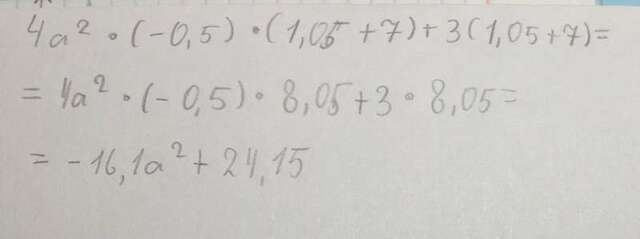 4a² · (-0,5) · (1,05 + 7) + 3(1,05+7)=
= 4a² · (-0,5) · 8,05 + 3 · 8,05 =
= -16,1a² + 24,15